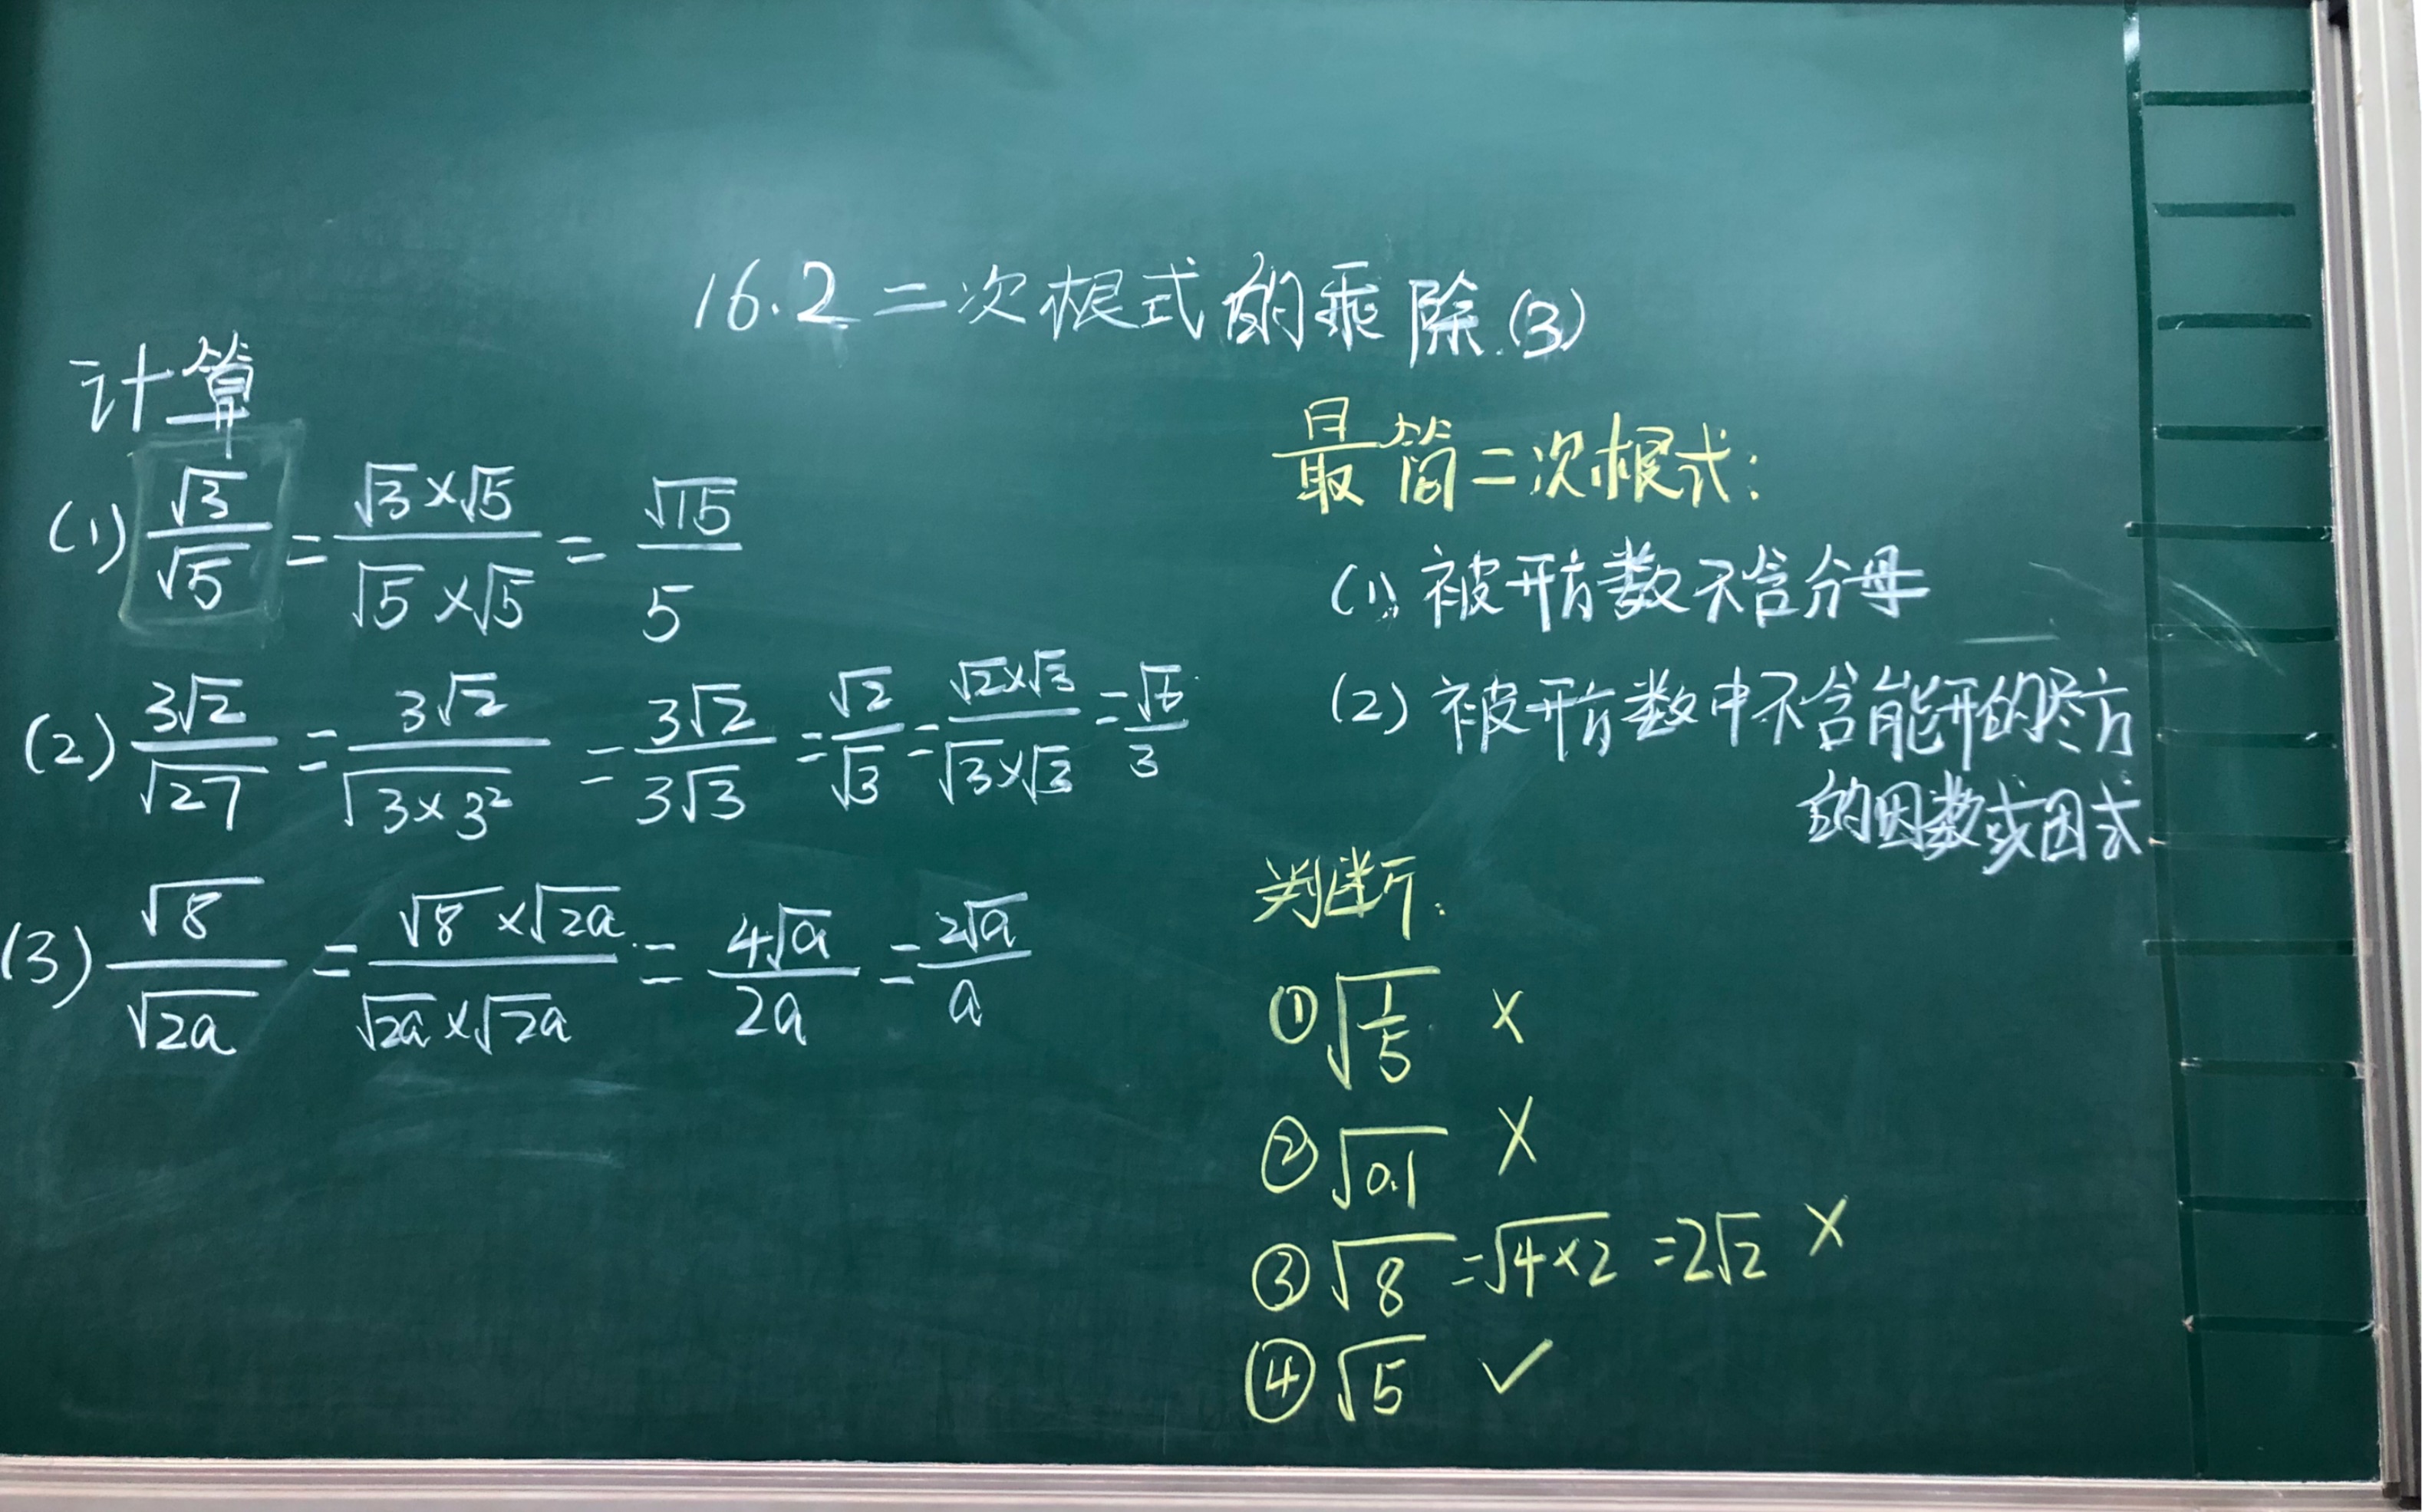 16.2 二次根式的乘除(3)
计算
(1) √3/√5 = (√3×√5)/(√5×√5) = √15/5
(2) 3√2/√27 = 3√2/√(3×3²) = 3√2/3√3 = √2/√3 = (√2×√3)/(√3×√3) = √6/3
(3) √8/√(2a) = (√8×√(2a))/(√(2a)×√(2a)) = 4√a/2a = 2√a/a
最简二次根式:
(1) 被开方数不含分母
(2) 被开方数中不含能开的尽方
的因数或因式
判断:
① √(1/5) ×
② √0.1 ×
③ √8 = √(4×2) = 2√2 ×
④ √5 ✓